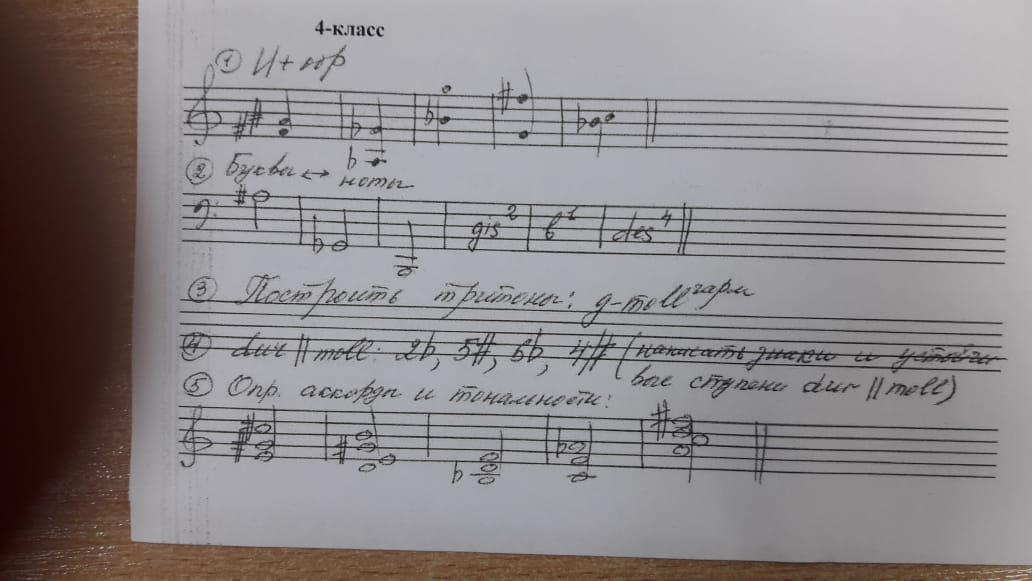 4-класс
① И + обр
② Буквы ↔ ноты
gis² b¹ des⁴
③ Построить тритоны: g-moll гарм
④ dur || moll: 2b, 5#, 6b, 4# (написать знаки и устойчи
вые ступени dur || moll)
⑤ Опр. аккорды и тональности: